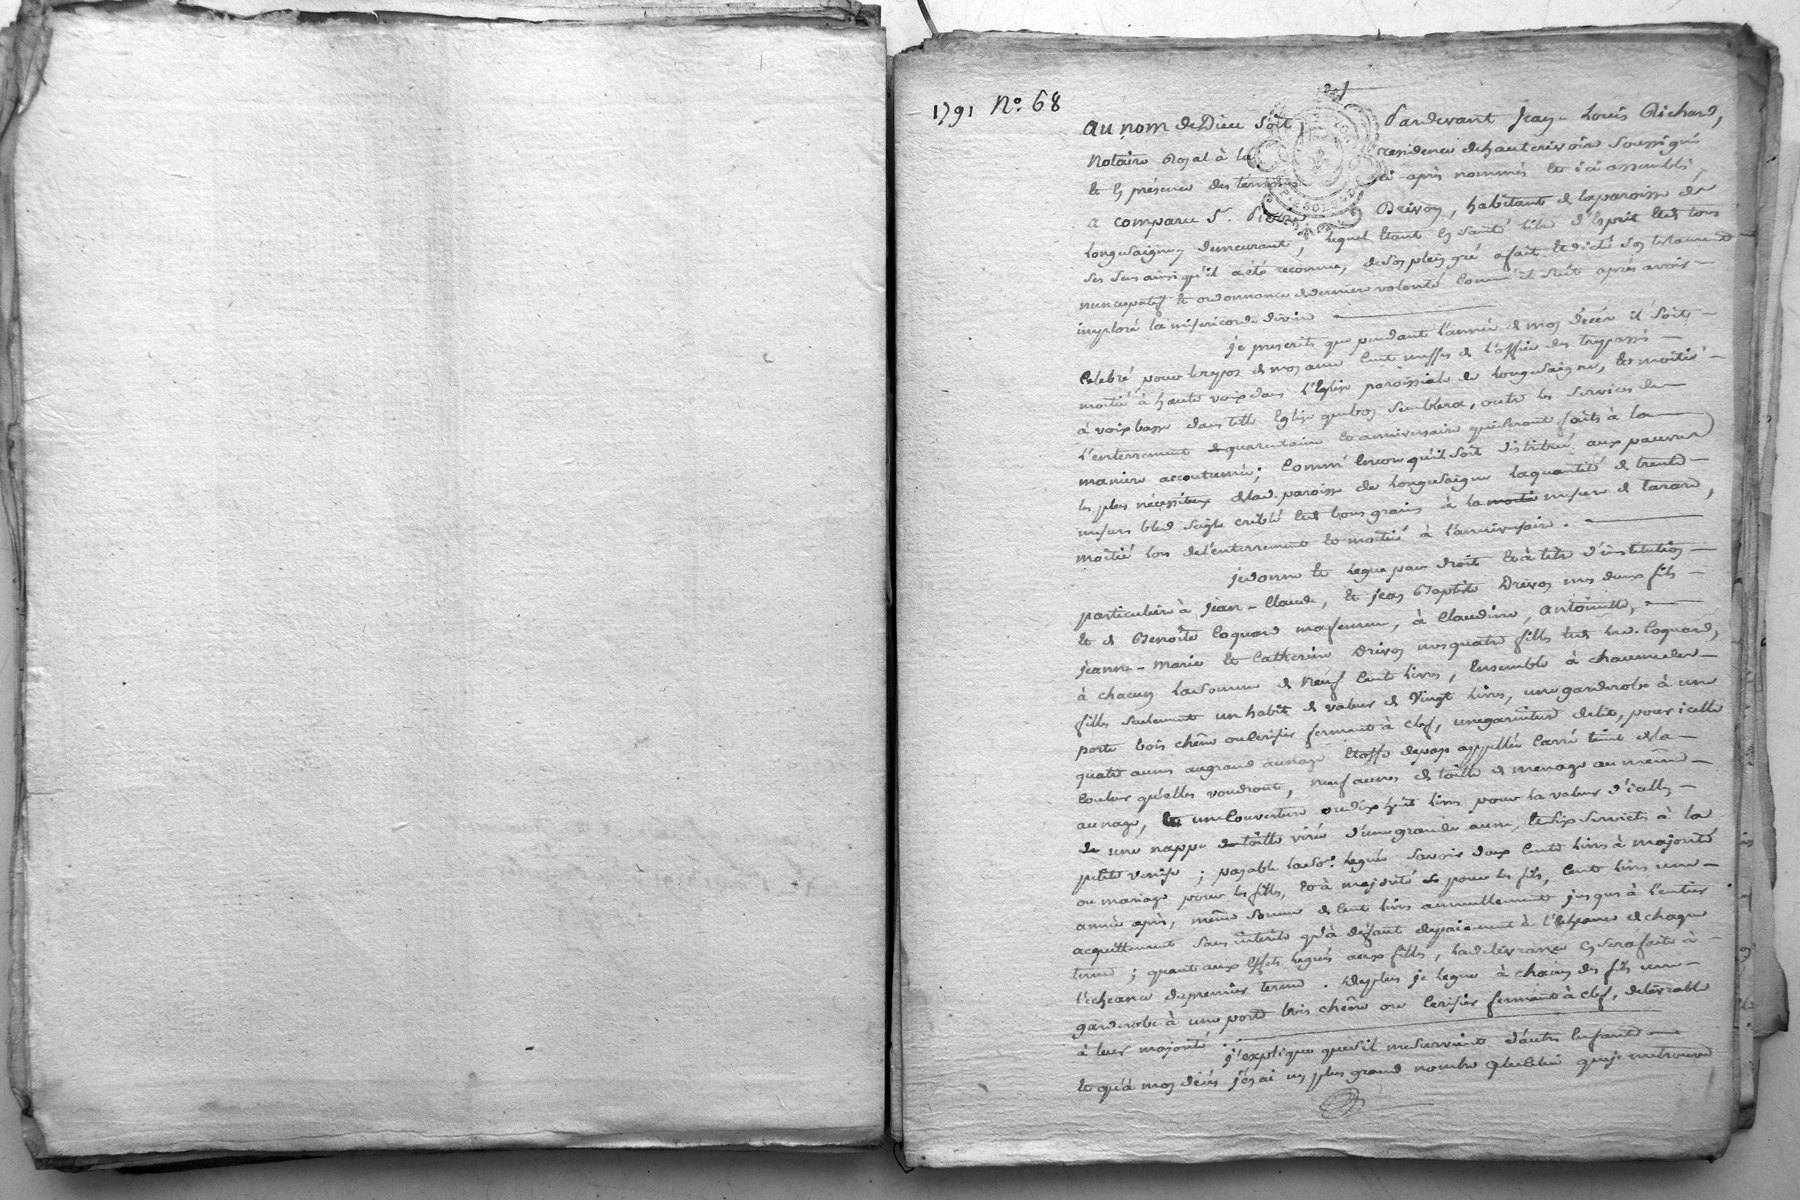 1791 No. 68
au nom de Dieu soit, Pardevant Jean-Louis Richard,
Notaire Royal à la résidence de hauterivoire soussigné
et en présence des témoins ci-après nommés et ici assemblés,
a comparu Sr. Pierre Drivon, habitant de la paroisse de
longesaigne y demeurant, lequel étant en santé libre d'esprit et de tous
ses sens ainsi qu'il a été reconnu, de son plein gré a fait et dicté son testament
nuncupatif et ordonnance de derniere volonté comm'il suit après avoir
imploré la misericorde divine
je prescrits que pendant l'année de mon décès il soit
celebré pour le repos de mon ame cent messes de l'office des trepassés
moitié à haute voix dans l'Eglise paroissiale de longesaigne, et moitié
à voix basse dans telle Eglise que bon semblera, outre les services de
l'enterrement quarantaine et anniversaire qui seront faits à la
maniere accoutumée; comme encore qu'il soit distribué aux pauvres
les plus nécessiteux de lad. paroisse de longesaigne la quantité de trente
mesures bled seigle criblé et de bons grains à la mesure de tarare,
moitié lors de l'enterrement et moitié à l'anniversaire.
je donne et legue par droit et à titre d'institution
particuliere à jean-Claude, et jean Baptiste Drivon mes deux fils
et de Benoîte Coquard ma femme, à Claudine, antoinette,
jeanne-marie et Catherine Drivon mes quatre filles et de lad. Coquard,
à chacun la somme de Neuf cent livres, Ensemble à chacune des
filles seulement un habit de valeur de vingt livres, une garderobe à une
porte bois chêne ou cerisier fermant à clef, une garniture de lit, pour icelle
quatre aunes au grand aunage Etoffe de pays appellée carré teint de la
couleur qu'elles voudront, neuf aunes de toille de menage au même
aunage, une couverture ou dix huit livres pour la valeur d'icelle,
une nappe de toille d'une grande aune, et six serviettes à la
petite venise; payable lad. so. leguée savoir deux cents livres à majorité
ou mariage pour les filles, et à majorité pour les fils, cent livres une
année après, même somme de cent livres annuellement jusques à l'entier
acquittement sans intérêts qu'à défaut de paiement à l'échéance de chaque
terme; quant aux effets legués aux filles, la délivrance en sera faite à
l'echéance du premier terme. De plus je legue à chacun des fils une
garderobe à une porte bois chêne ou cerisier fermant à clef, delivrable
à leur majorité.
j'explique que s'il me survient d'autres Enfants
et qu'à mon décès j'en ai un plus grand nombre que celui que je me trouve